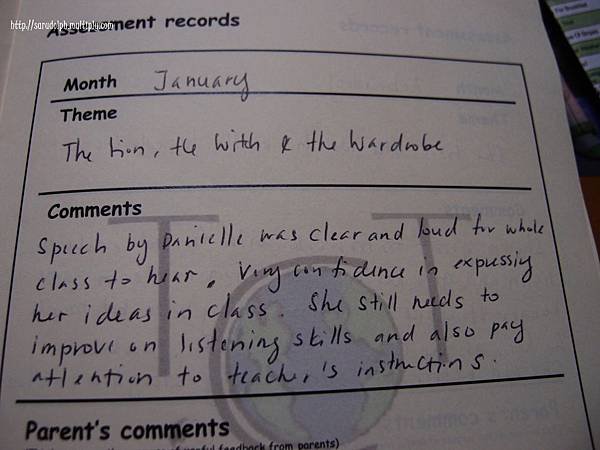 http://sarudolph.multiply.com
Assessment records
Month January
Theme
The Lion, the Witch & the Wardrobe
Comments
Speech by Danielle was clear and loud for whole
class to hear. Very confidence in expressing
her ideas in class. She still needs to
improve on listening skills and also pay
attention to teacher's instructions.
Parent's comments
feedback from parents)